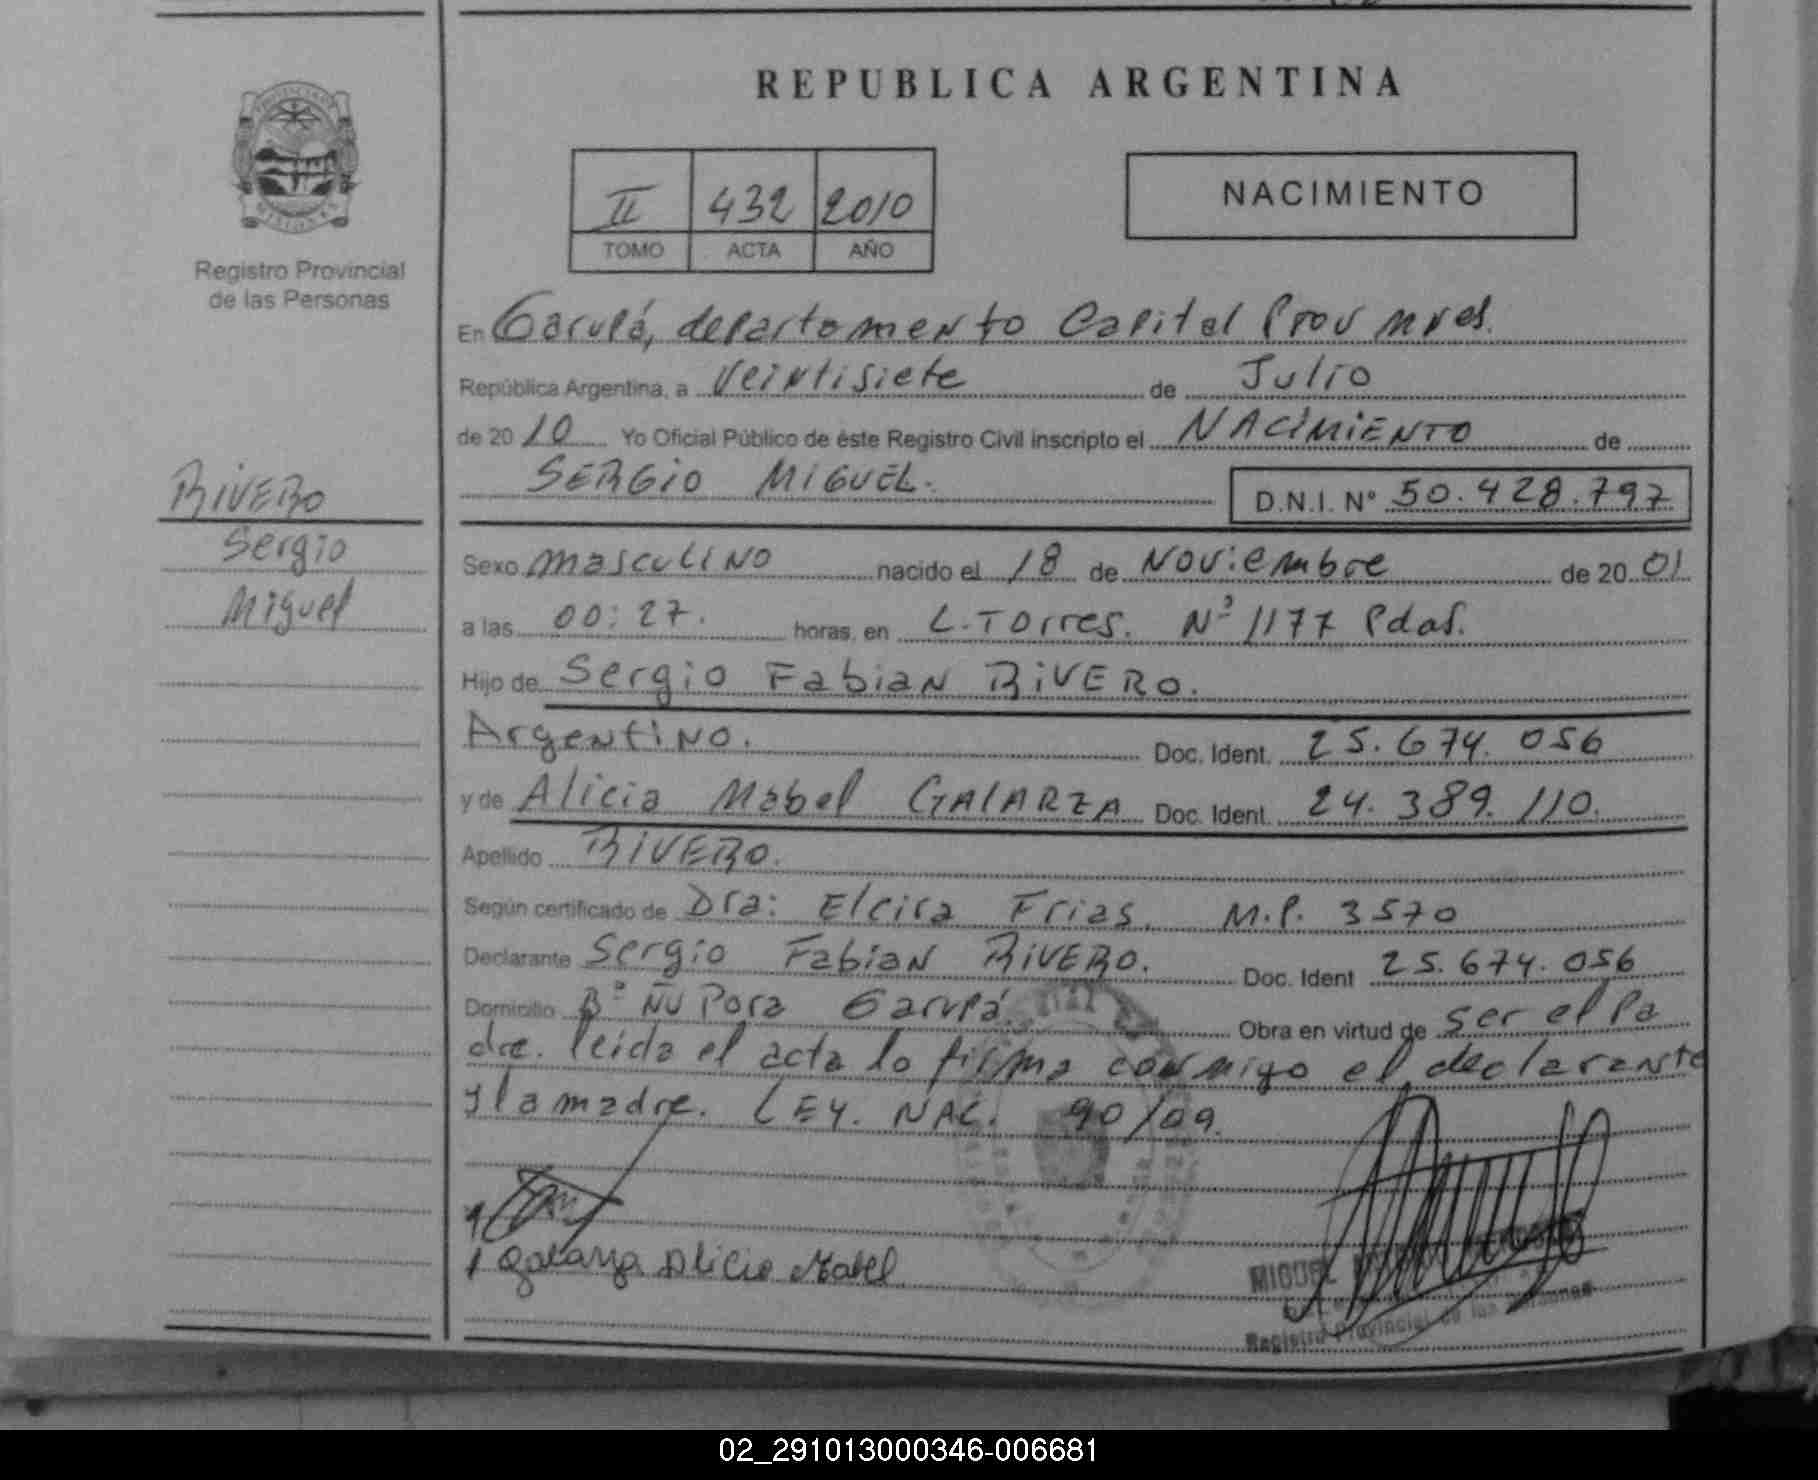 REPUBLICA ARGENTINA
PROVINCIA DE
MISIONES
Registro Provincial
de las Personas
II 432 2010
TOMO ACTA AÑO
NACIMIENTO
En Garupá, departamento Capital Prov mnes.
República Argentina, a Veintisiete de Julio
de 2010 Yo Oficial Público de éste Registro Civil inscripto el NACIMIENTO de
SERGIO MIGUEL. D.N.I. Nº 50.428.797
RIVERO
Sergio
Miguel
Sexo masculino nacido el 18 de Noviembre de 2001
a las 00:27. horas, en L. Torres. Nº 1177 Pdas.
Hijo de Sergio Fabian RIVERO.
Argentino. Doc. Ident. 25.674.056
y de Alicia Mabel GALARZA Doc. Ident. 24.389.110.
Apellido RIVERO.
Según certificado de Dra: Elcira Frias. M.P. 3570
Declarante Sergio Fabian RIVERO. Doc. Ident 25.674.056
Domicilio Bº ÑU Pora Garupá Obra en virtud de ser el Pa
dre. leida el acta lo firma conmigo el declarante
y la madre. LEY. NAC. 90/09.
Galarza Alicia Mabel
MIGUEL
Registro Provincial de las Personas
02_291013000346-006681